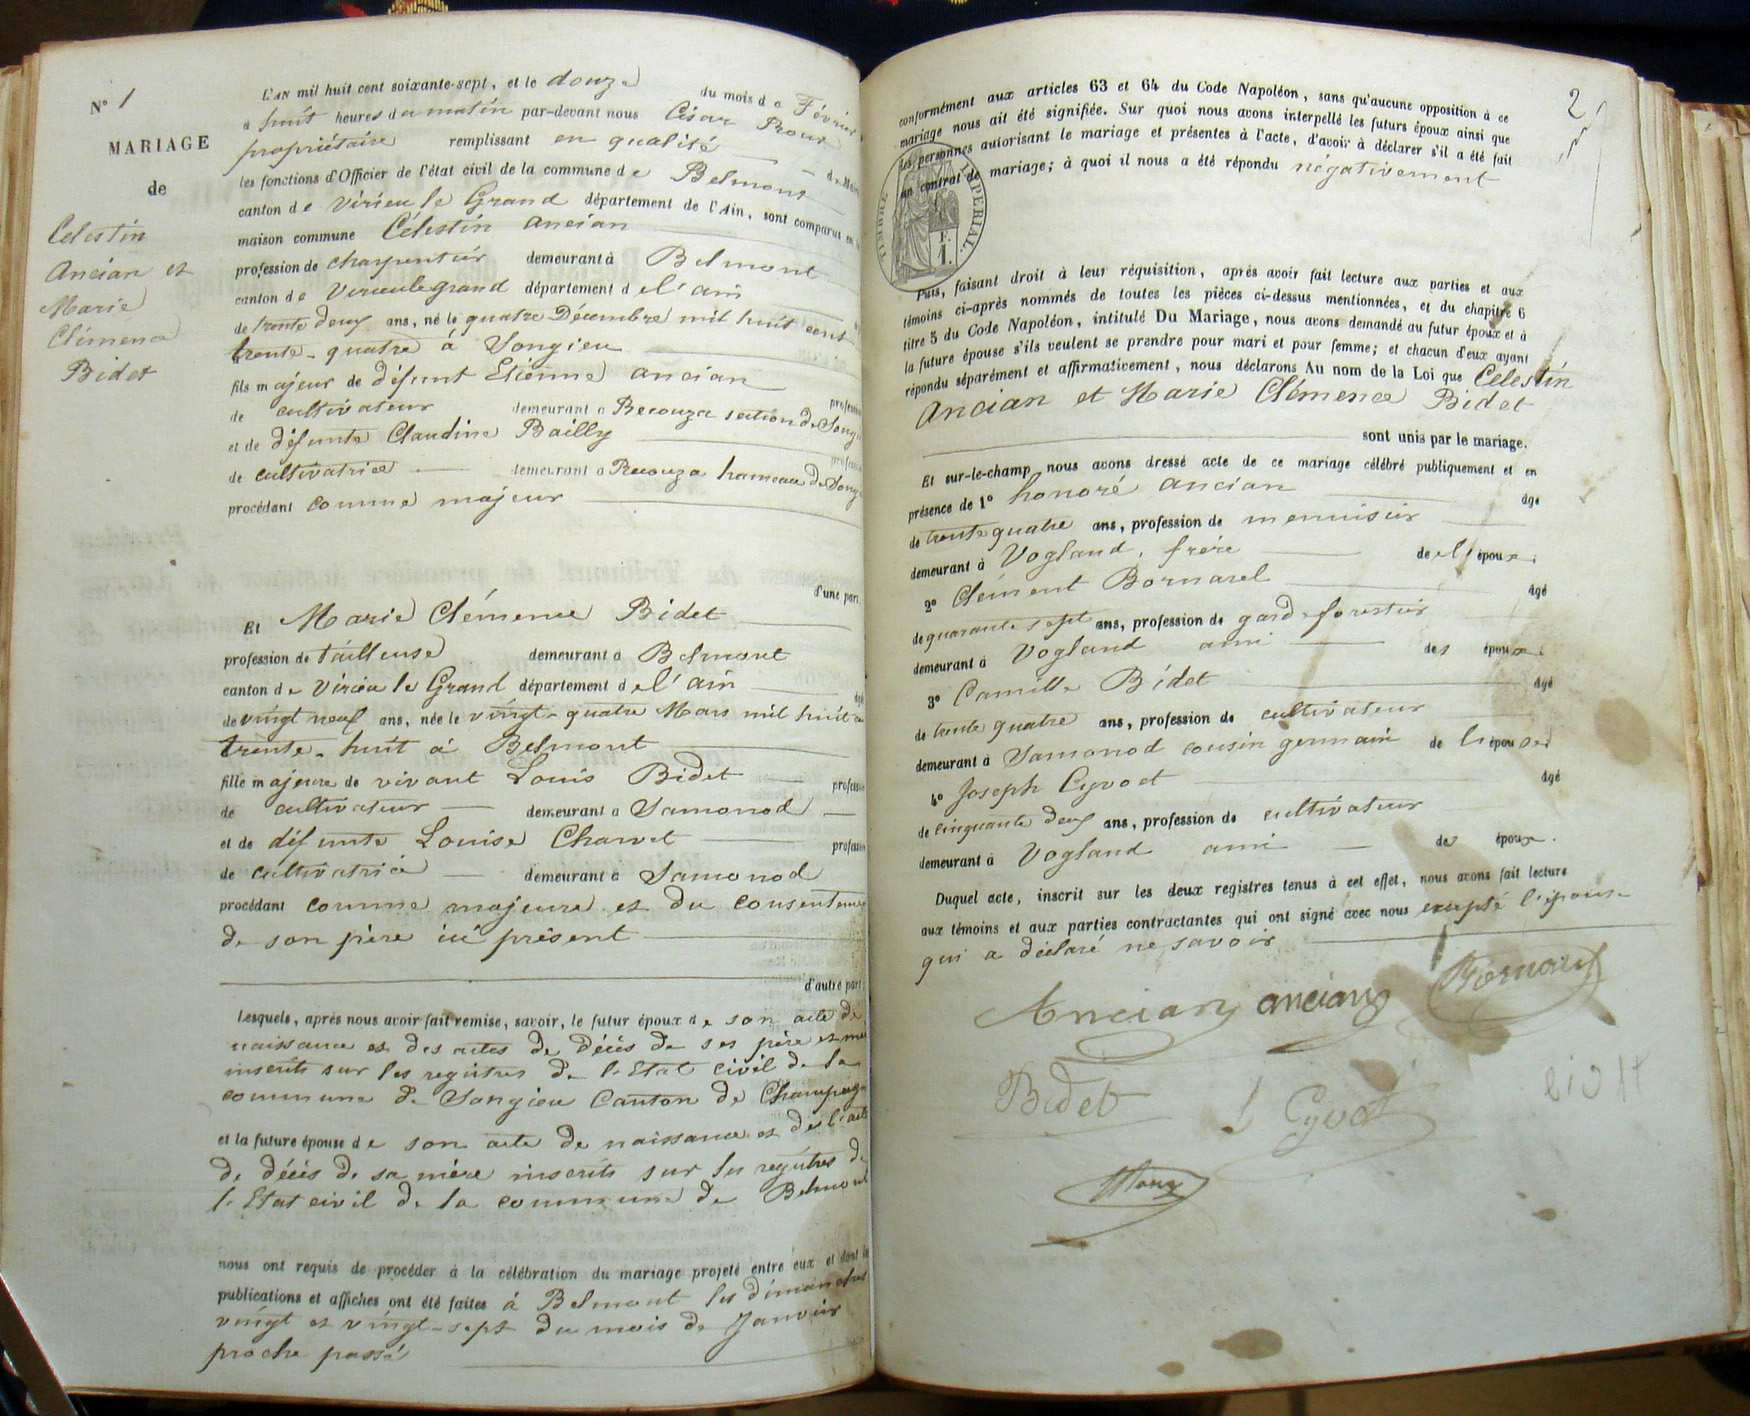 N° 1
MARIAGE
de
Célestin
Ancian et
Marie
Clémence
Bidet
L'AN mil huit cent soixante-sept, et le douze du mois de Février
à huit heures du matin par-devant nous César Proux
propriétaire remplissant en qualité de Maire
les fonctions d'Officier de l'état civil de la commune de Belmont
canton de Virieu le Grand département de l'Ain, sont comparus en la
maison commune Célestin Ancian
profession de charpentier demeurant à Belmont
canton de Virieu le grand département de l'ain
de trente deux ans, né le quatre Décembre mil huit cent
trente-quatre à Songieu
fils majeur de défunt Etienne Ancian profession
de cultivateur demeurant à section de
et de défunte Claudine Bailly profession
de cultivatrice demeurant à hameau de
procédant comme majeur
d'une part,
Et Marie Clémence Bidet
profession de tailleuse demeurant à Belmont
canton de Virieu le Grand département de l'ain
de vingt neuf ans, née le vingt-quatre Mars mil huit
trente-huit à Belmont
fille majeure de vivant Louis Bidet profession
de cultivateur demeurant à Samonod
et de défunte Louise Charvet profession
de cultivatrice demeurant à Samonod
procédant comme majeure et du consentement
de son père ici présent
d'autre part.
Lesquels, après nous avoir fait remise, savoir, le futur époux de son acte de
naissance et des actes de décès de ses père et mère
inscrits sur les registres de l'Etat civil de la
commune de Songieu Canton de Champagne
et la future épouse de son acte de naissance et de l'acte
de décès de sa mère inscrits sur les registres de
l'Etat civil de la commune de Belmont
nous ont requis de procéder à la célébration du mariage projeté entre eux et dont les
publications et affiches ont été faites à Belmont les dimanches
vingt et vingt-sept du mois de Janvier
proche passé
2
conformément aux articles 63 et 64 du Code Napoléon, sans qu'aucune opposition à ce
mariage nous ait été signifiée. Sur quoi nous avons interpellé les futurs époux ainsi que
les personnes autorisant le mariage et présentes à l'acte, d'avoir à déclarer s'il a été fait
un contrat de mariage; à quoi il nous a été répondu négativement
TIMBRE IMPERIAL.
F.
1.
Puis, faisant droit à leur réquisition, après avoir fait lecture aux parties et aux
témoins ci-après nommés de toutes les pièces ci-dessus mentionnées, et du chapitre 6
titre 5 du Code Napoléon, intitulé Du Mariage, nous avons demandé au futur époux et à
la future épouse s'ils veulent se prendre pour mari et pour femme; et chacun d'eux ayant
répondu séparément et affirmativement, nous déclarons Au nom de la Loi que Célestin
Ancian et Marie Clémence Bidet
sont unis par le mariage.
Et sur-le-champ nous avons dressé acte de ce mariage célébré publiquement et en
présence de 1° honoré Ancian âgé
de trente quatre ans, profession de menuisier
demeurant à Vogland, frère de l'époux.
2° Clément Bornarel âgé
de quarante sept ans, profession de garde forestier
demeurant à Vogland ami des époux.
3° Camille Bidet âgé
de trente quatre ans, profession de cultivateur
demeurant à Samonod cousin germain de l'épouse
4° Joseph Cyvoct âgé
de cinquante deux ans, profession de cultivateur
demeurant à Vogland ami des époux.
Duquel acte, inscrit sur les deux registres tenus à cet effet, nous avons fait lecture
aux témoins et aux parties contractantes qui ont signé avec nous excepté l'épouse
qui a déclaré ne savoir
Ancian ancian Bornarel
Bidet J Cyvoct